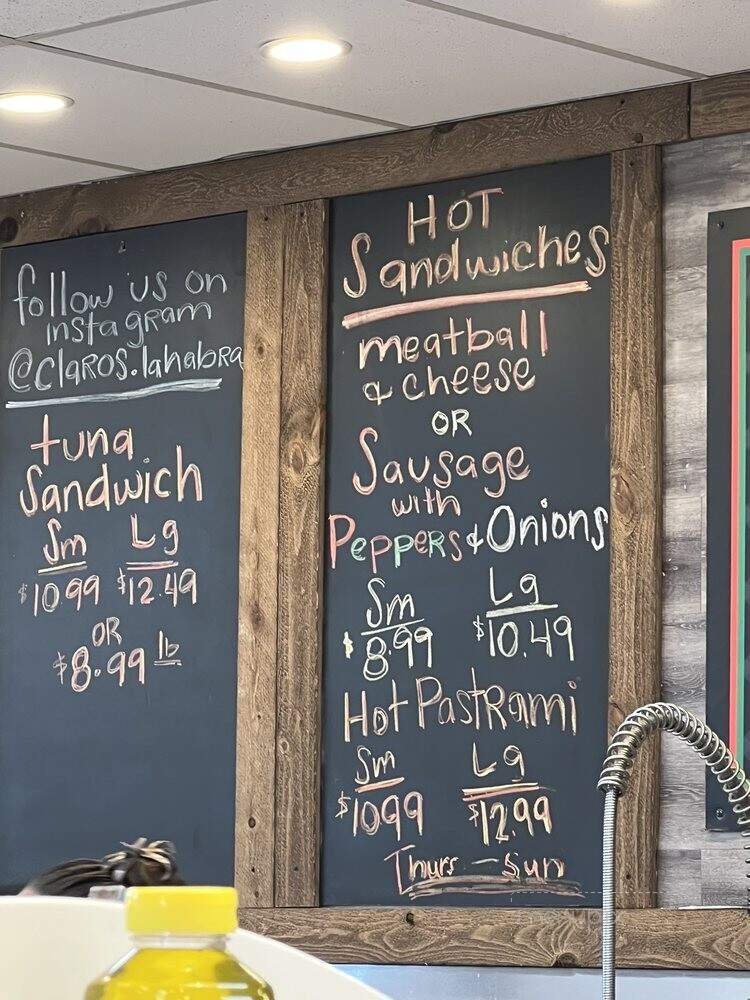 follow us on
instagram
@claros.lahabra
tuna
Sandwich
Sm Lg
$10.99 $12.49
OR
$8.99 lb
HOT
Sandwiches
meatball
& cheese
OR
Sausage
with
Peppers & Onions
Sm Lg
$8.99 $10.49
Hot Pastrami
Sm Lg
$1099 $12.99
Thurs - Sun